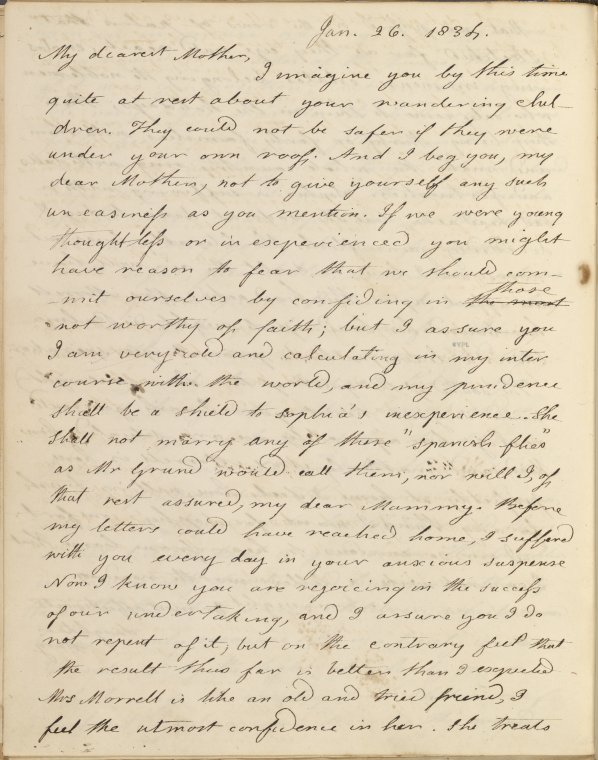 Jan. 26. 1834.
My dearest Mother,
I imagine you by this time
quite at rest about your wandering chil-
dren. They could not be safer if they were
under your own roof. And I beg you, my
dear Mother, not to give yourself any such
uneasiness as you mention. If we were young
thoughtless or inexperienced you might
have reason to fear that we should com-
those
-mit ourselves by confiding in the most
not worthy of faith; but I assure you
I am very cold and calculating in my inter
course with the world, and my prudence
shall be a shield to Sophia's inexperience. She
shall not marry any of these "Spanish flies"
as Mr Grund would call them, nor will I, of
that rest assured, my dear Mammy. Before
my letters could have reached home, I suffered
with you every day in your anxious suspense
Now I know you are rejoicing in the success
of our undertaking, and I assure you I do
not repent of it, but on the contrary feel that
the result thus far is better than I expected.
Mrs Morrell is like an old and tried friend, I
feel the utmost confidence in her. She treats